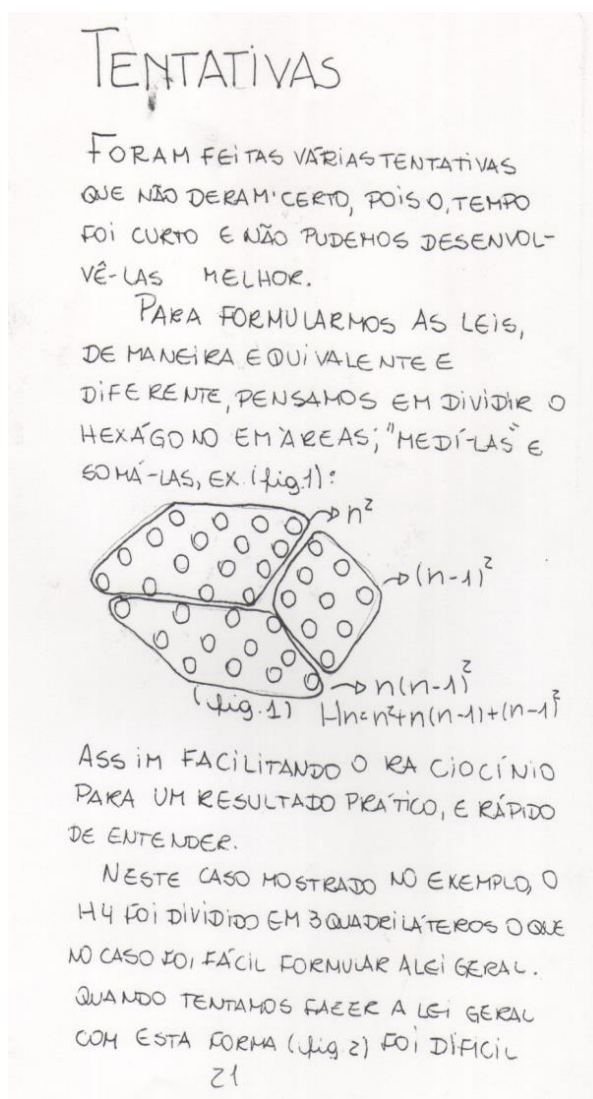 TENTATIVAS
FORAM FEITAS VÁRIAS TENTATIVAS
QUE NÃO DERAM CERTO, POIS O, TEMPO
FOI CURTO E NÃO PUDEMOS DESENVOL-
VÊ-LAS MELHOR.
PARA FORMULARMOS AS LEIS,
DE MANEIRA EQUIVALENTE E
DIFERENTE, PENSAMOS EM DIVIDIR O
HEXÁGONO EM ÀREAS; "MEDÍ-LAS" E
SOMÁ-LAS, EX. (fig.1):
n²
(n-1)²
n(n-1)²
(fig.1) Hn=n²+n(n-1)+(n-1)²
ASSIM FACILITANDO O RACIOCÍNIO
PARA UM RESULTADO PRÁTICO, E RÁPIDO
DE ENTENDER.
NESTE CASO MOSTRADO NO EXEMPLO, O
H4 FOI DIVIDIDO EM 3 QUADRILÁTEROS O QUE
NO CASO FOI FÁCIL FORMULAR A LEI GERAL.
QUANDO TENTAMOS FAZER A LEI GERAL
COM ESTA FORMA (fig 2) FOI DÍFICIL
21